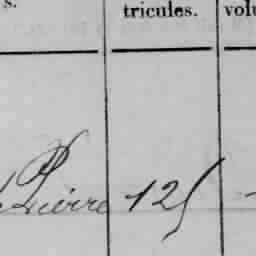 s. tricules. volu
Pierre 125